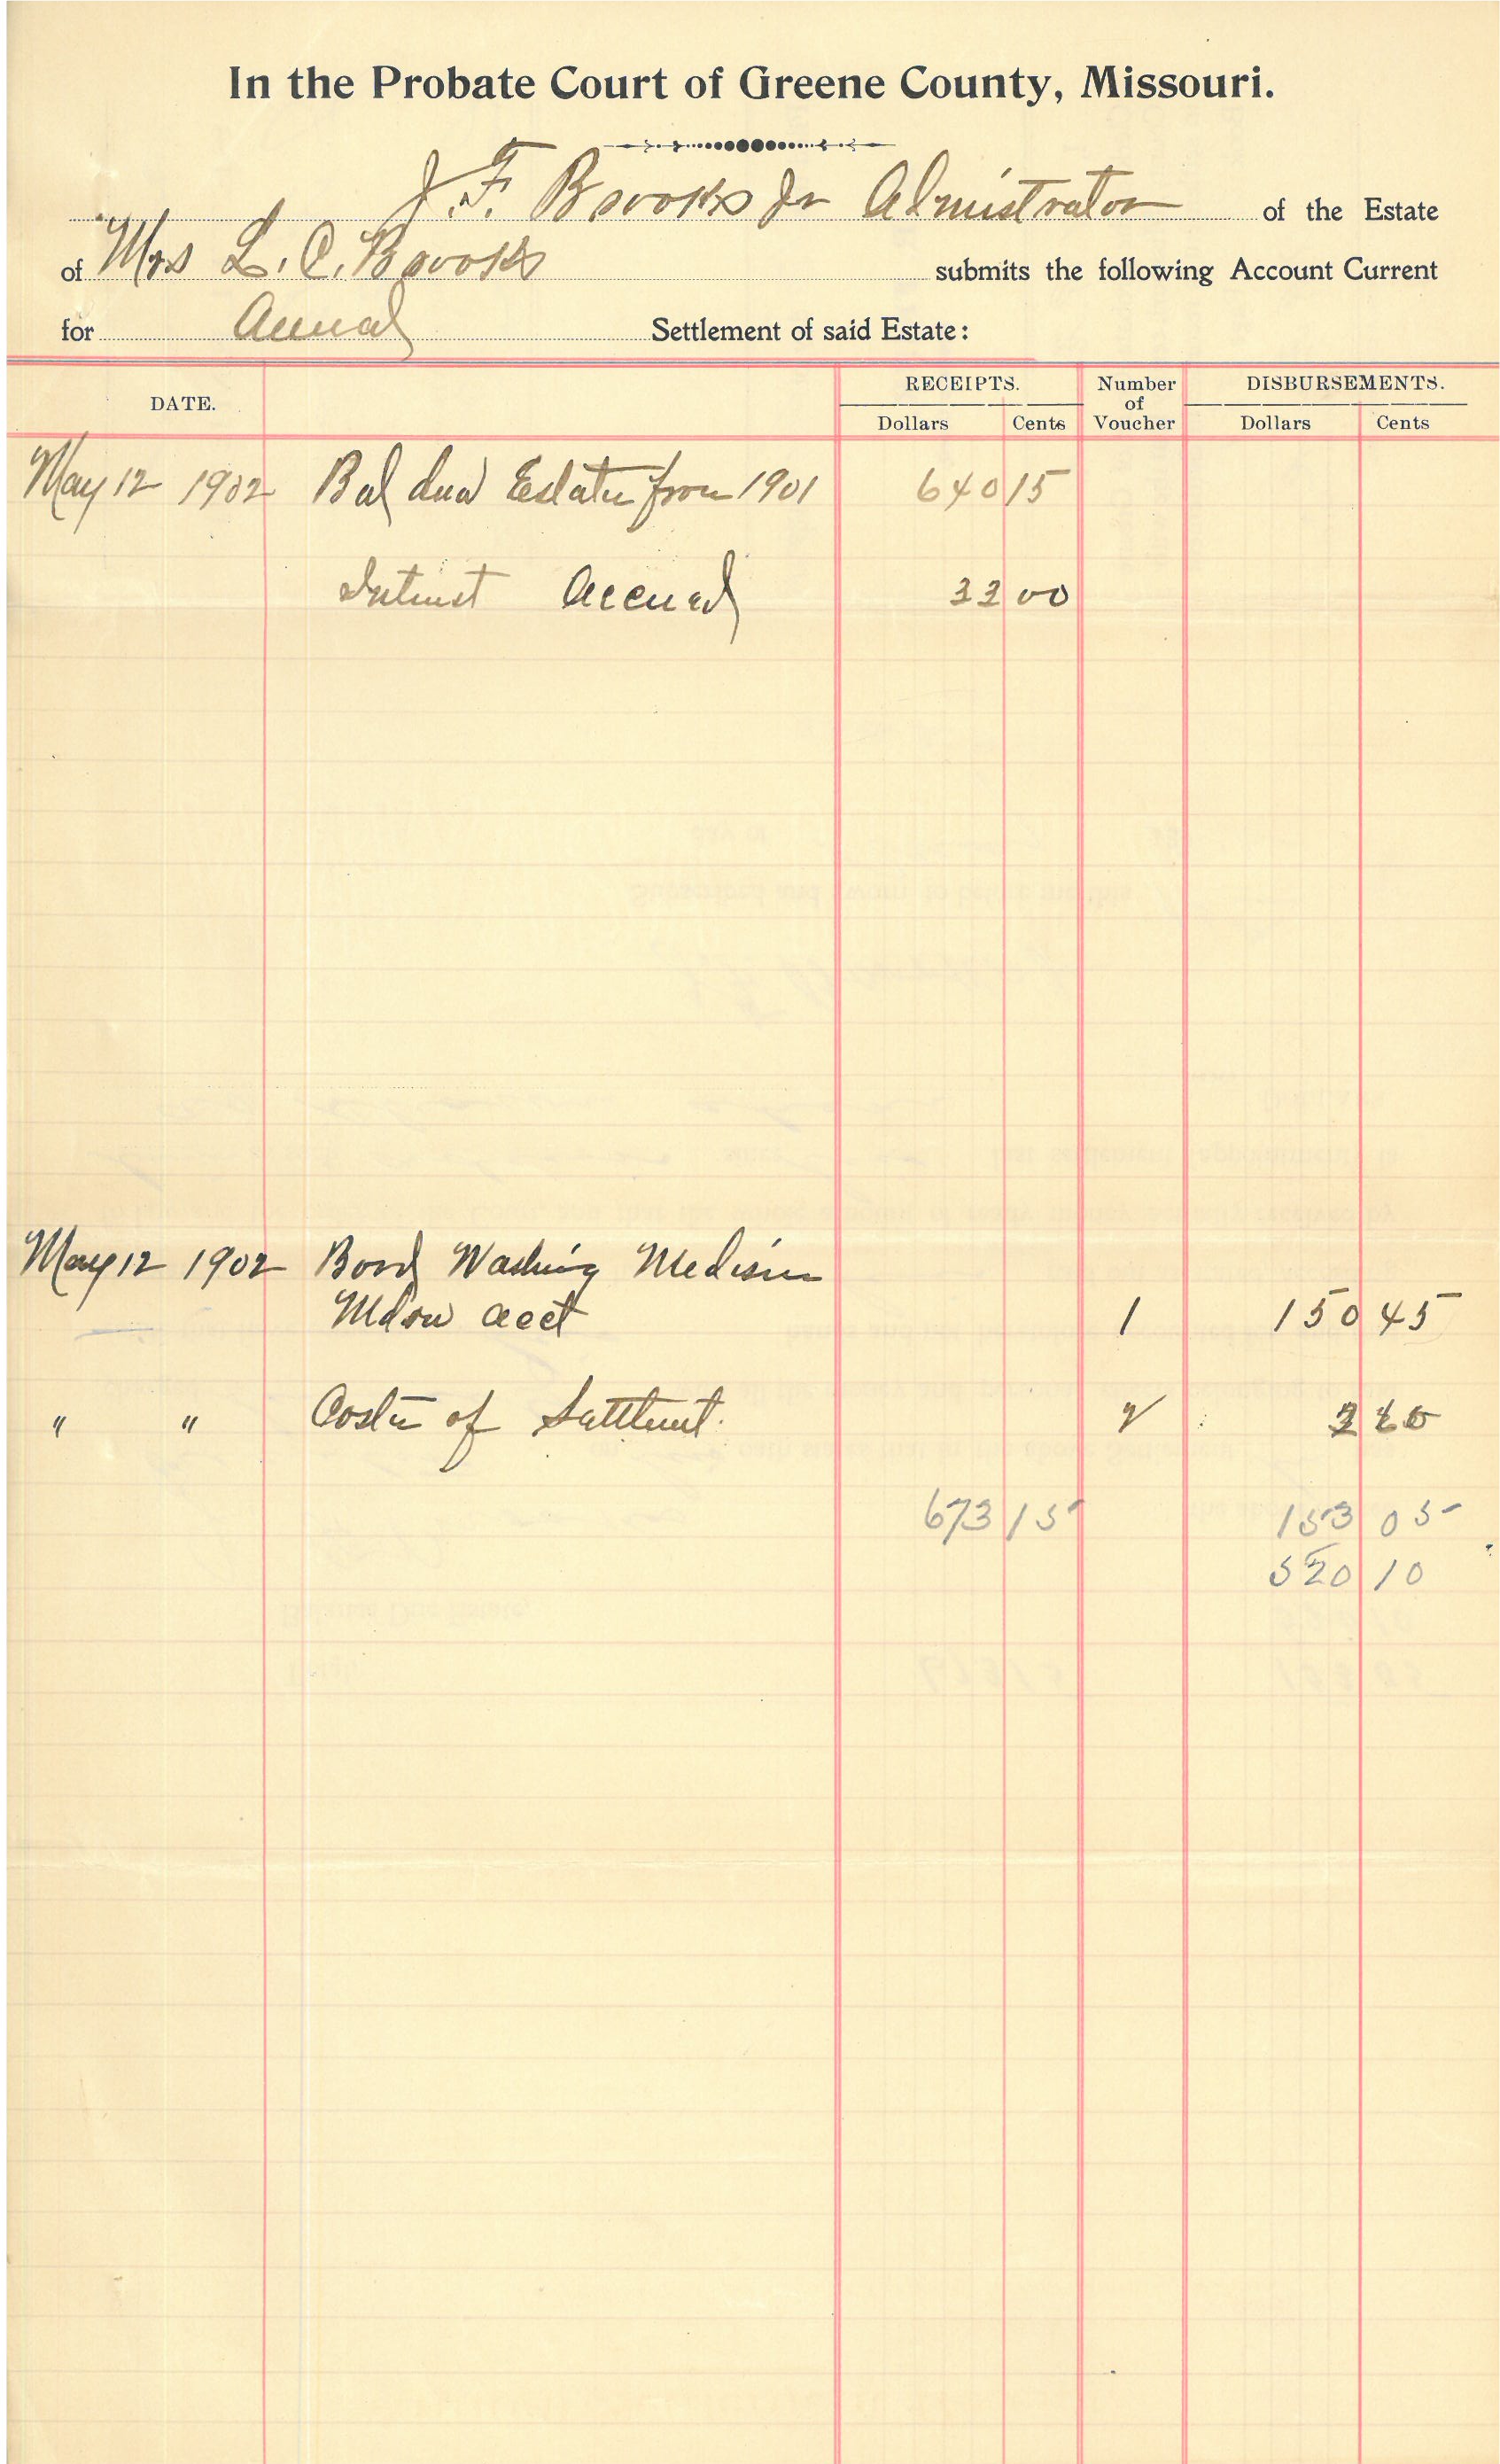 In the Probate Court of Greene County, Missouri.
J. F. Brooks Jr Admistrator of the Estate
of Mrs L. C. Brooks submits the following Account Current
for Anual Settlement of said Estate:
DATE. RECEIPTS. Number of Voucher DISBURSEMENTS.
Dollars Cents Dollars Cents
May 12 1902 Bal due Estate from 1901 640 15
Intrest Accrued 33 00
May 12 1902 Bord Washing Medisin
acct 1 150 45
" " Costs of Settlment. 2 2 60
673 15 153 05
520 10